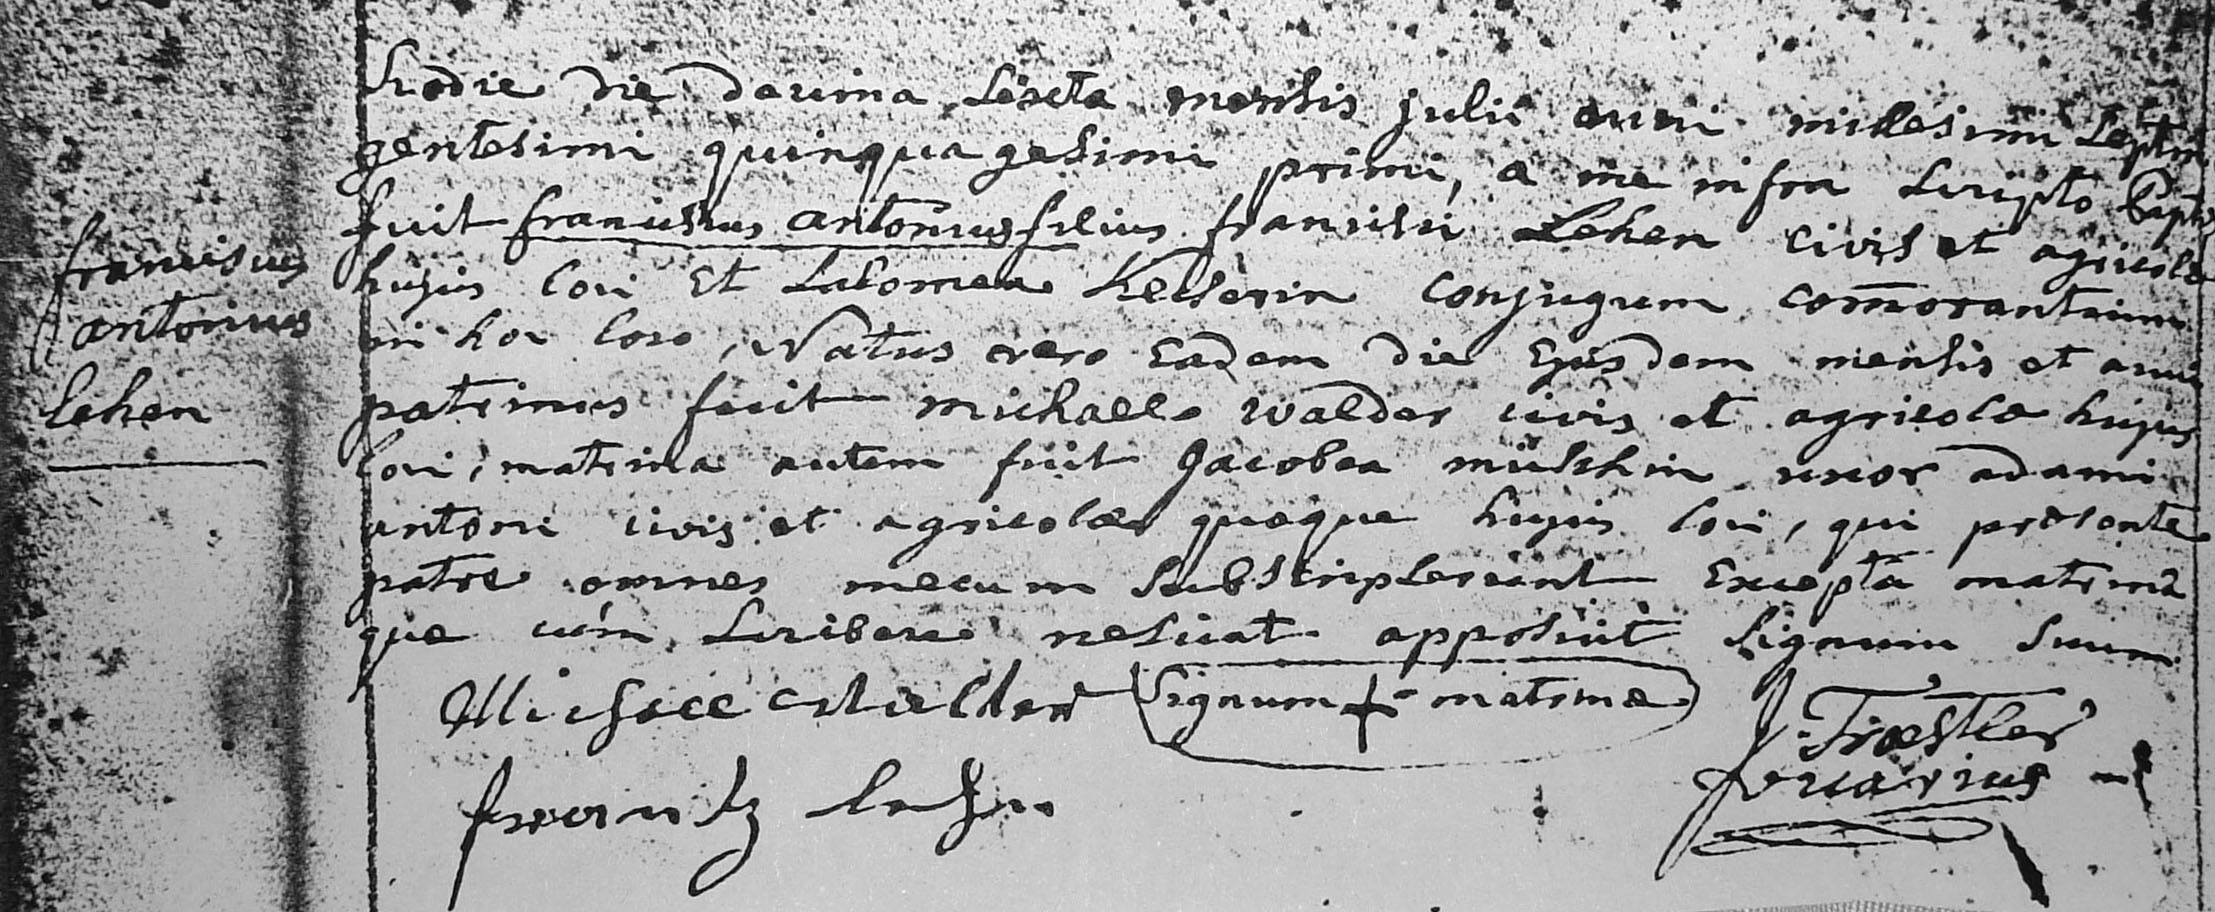 franciscus
antonius
lehen
hodie die decima sexta mensis Julii anni millesimi septin
gentesimi quinquagesimi primi, a me infra scripto Baptiz
fuit franciscus antonius filius francisci Lehen civis et agricolæ
hujus loci Et Salomea Keiserin conjugum com̄orantium
in hoc loco, Natus vero Eadem die Ejusdem mensis et anni
patrinus fuit michaele walder civis et agricola hujus
loci, matrina autem fuit Jacobea müschin uxor adami
antoni civis et agricolæ queque hujus loci, qui presente
patre omnes mecum subscripserunt Excepta matrina
que cùm scribere nesciat apposuit signum suum
Michael Walder Signum + matrinæ
frantz Lehn
J. Trœstler
vicarius